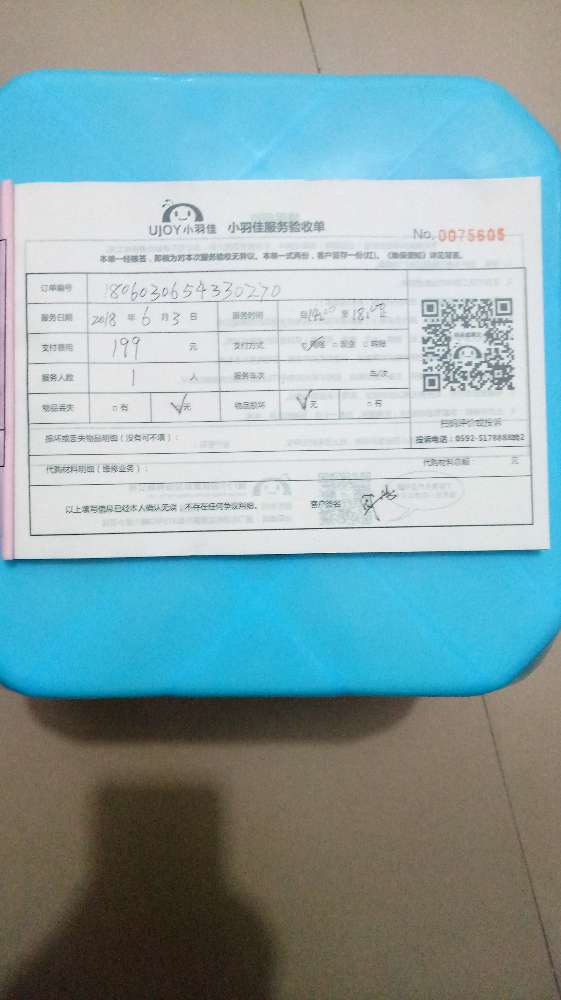 UJOY小羽佳 小羽佳服务验收单
No. 0075605
本单一经核签，即视为对本次服务验收无异议。本单一式两份，客户留存一份(红)。《售保须知》详见背面。
订单编号 1806030654330270
服务日期 2018 年 6 月 3 日 服务时间 自14:00 至 18:00止
支付费用 199 元 支付方式 ☑网络 □现金 □转账
服务人数 1 人 服务车次 车/次
物品丢失 □有 ☑无 物品损坏 ☑无 □有
扫码评价或投诉
损坏或丢失物品明细（没有可不填）：
投诉电话：0592-5178888转2
代购材料明细（维修业务）： 代购材料总额： 元
以上填写信息已经本人确认无误，不存在任何争议纠纷。 客户签名